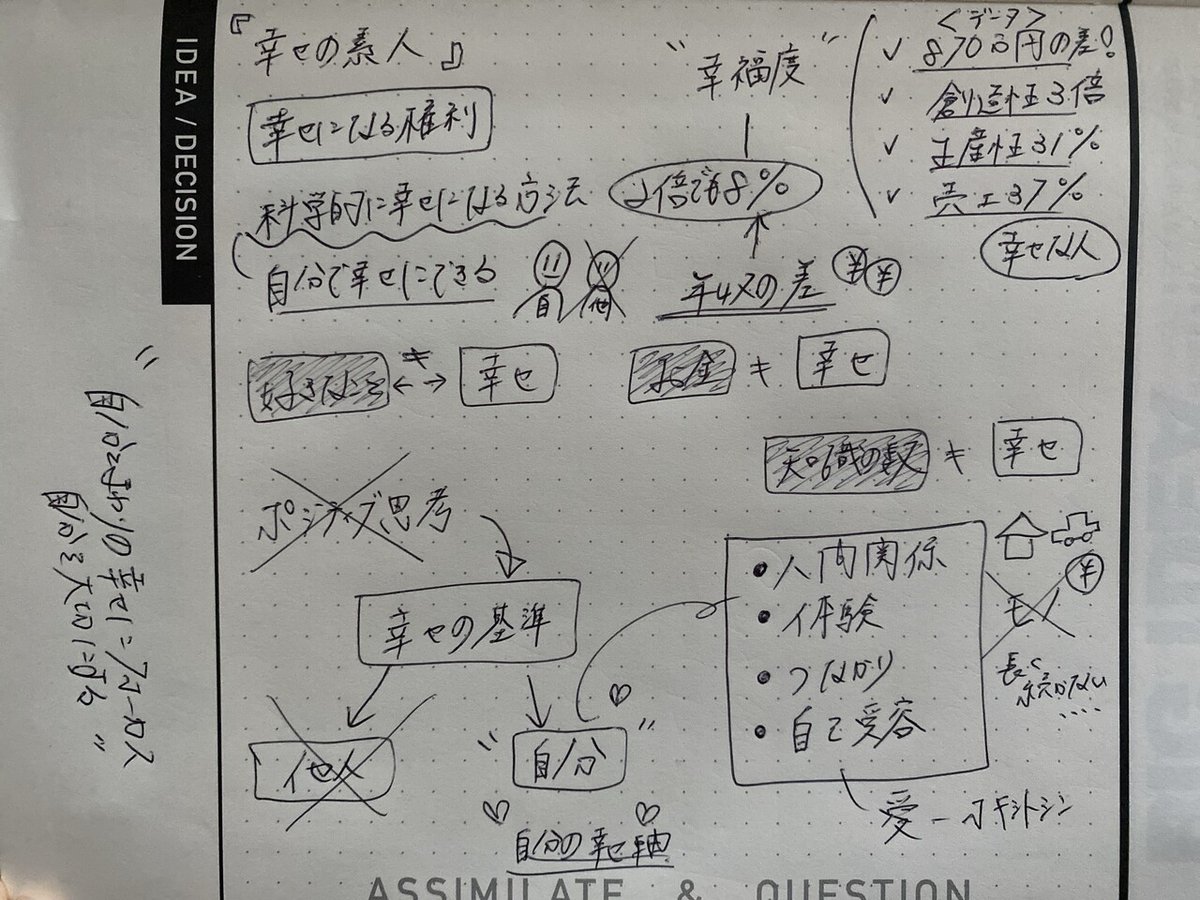 IDEA / DECISION
『幸せの素人』
幸せになる権利
科学的に幸せになる方法
自分で幸せにできる
自 他
"幸福度"
2倍でも8%
年収の差 ¥ ¥
<データ>
✓ 870万円の差!
✓ 創造性3倍
✓ 生産性31%
✓ 売上37%
幸せな人
好きなこと ≠ ←→ 幸せ
お金 ≠ 幸せ
知識の数 ≠ 幸せ
ポジティブ思考
幸せの基準
他人
"自分"
自分の幸せ軸
• 人間関係
• 体験
• つながり
• 自己受容
¥
モノ
長く
続かない
....
愛 - オキシトシン
"自分なりの幸せにフォーカス
自分を大切にする"
ASSIMILATE & QUESTION